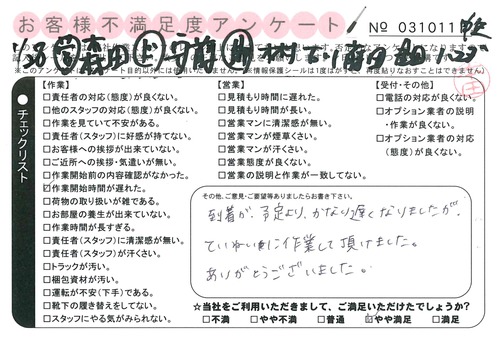 お客様不満足度アンケート
№ 031011
※このアンケートは目的以外には使用いたしません。※情報保護シールは1度はがすと、再度貼りなおすことはできません)
チェックリスト
【作業】
□責任者の対応(態度)が良くない。
□他のスタッフの対応(態度)が良くない。
□作業を見ていて不安がある。
□責任者(スタッフ)に好感が持てない。
□お客様への挨拶が出来ていない。
□ご近所への挨拶・気遣いが無い。
□作業開始前の内容確認がなかった。
☑作業開始時間が遅れた。
□荷物の取り扱いが雑である。
□お部屋の養生が出来ていない。
□作業時間が長すぎる。
□責任者(スタッフ)に清潔感が無い。
□責任者(スタッフ)が汗くさい。
□トラックが汚い。
□梱包資材が汚い。
□運転が不安(下手)である。
□靴下の履き替えをしてない。
□スタッフにやる気がみられない。
【営業】
□見積もり時間に遅れた。
□見積もり時間が長い。
□営業マンに清潔感が無い。
□営業マンが煙草くさい。
□営業マンが汗くさい。
□営業態度が良くない。
□営業の説明と作業が一致してない。
【受付・その他】
□電話の対応が良くない。
□オプション業者の説明
・作業が良くない。
□オプション業者の対応
(態度)が良くない。
その他、ご意見・ご要望等ありましたらお書き下さい。
到着が、予定より、かなり遅くなりましたが、
ていねいに作業して頂けました。
ありがとうございました。
☆当社をご利用いただきまして、ご満足いただけたでしょうか?
□不満 □やや不満 □普通 ☑やや満足 □満足